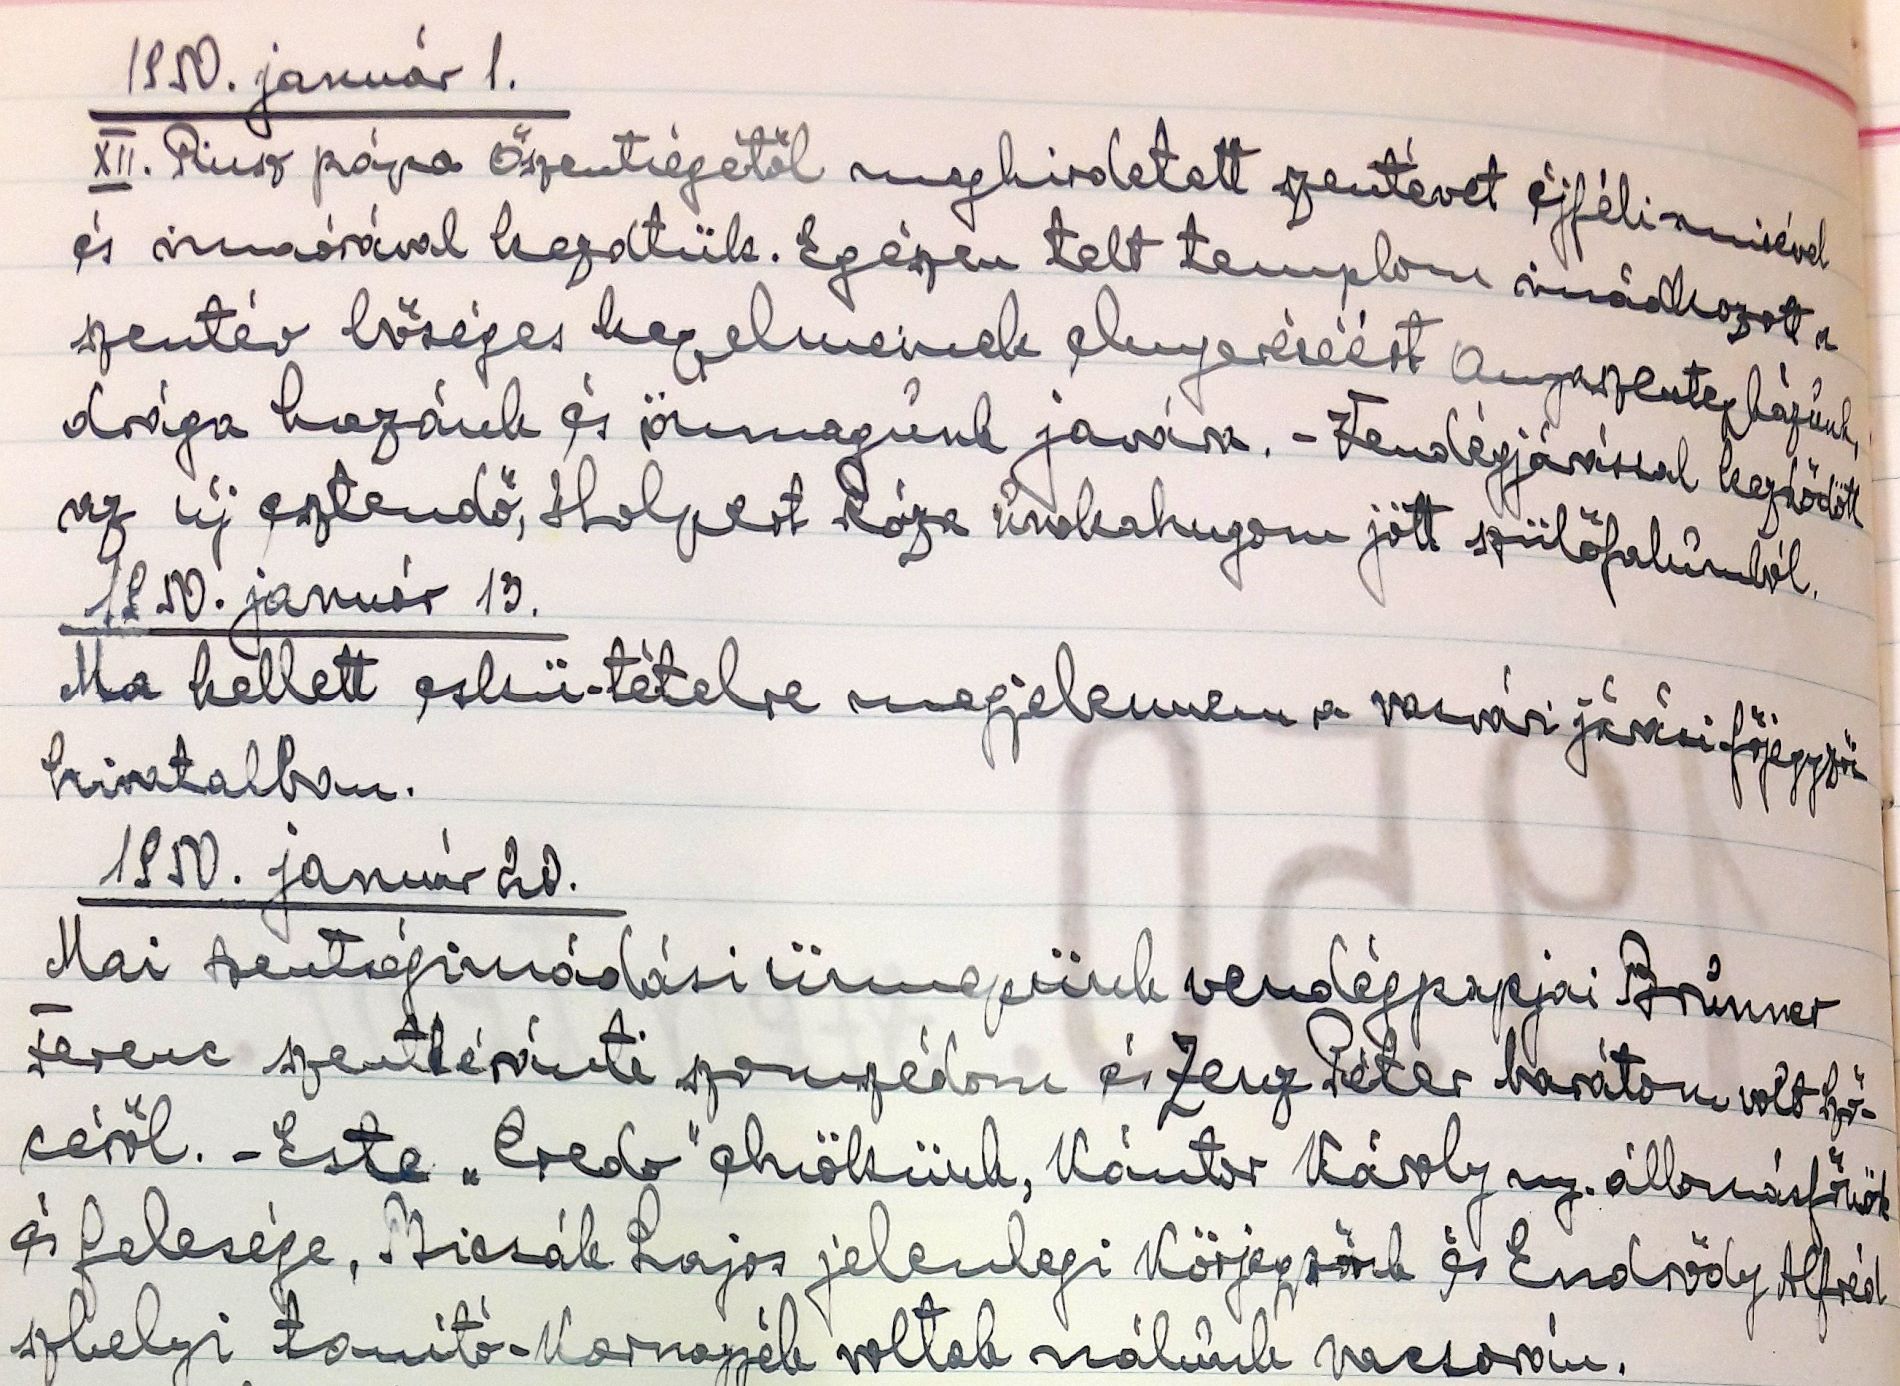 1950. január 1.
XII. Piusz pápa Őszentségétől meghirdetett szentévet éjféli-misével
és imaórával kezdtük. Egészen telt templom imádkozott a
szentév bőséges kegyelmeinek elnyeréséért Anyaszentegyházunk,
drága hazánk és önmagunk javára. - Vendégjárással kezdődött
az új esztendő, Holpert Róza unokahugom jött szülőfalumból.
1950. január 13.
Ma kellett eskü-tételre megjelennem a vasvári járási-főjegyzői
hivatalban.
1950. január 20.
Mai szentségimádási ünnepünk vendégpapjai Brunner
Ferenc szentkéránti szomszédom és Zenz Péter barátom volt
céről. - Este „Credo" elnökünk, Kántor Károly ny. állomásfőnök
és felesége, Bicsák Lajos jelenlegi körjegyzőnk és Endrődy Alfréd
szhelyi tanító-karnagyék voltak nálunk vacsorán.
1950.